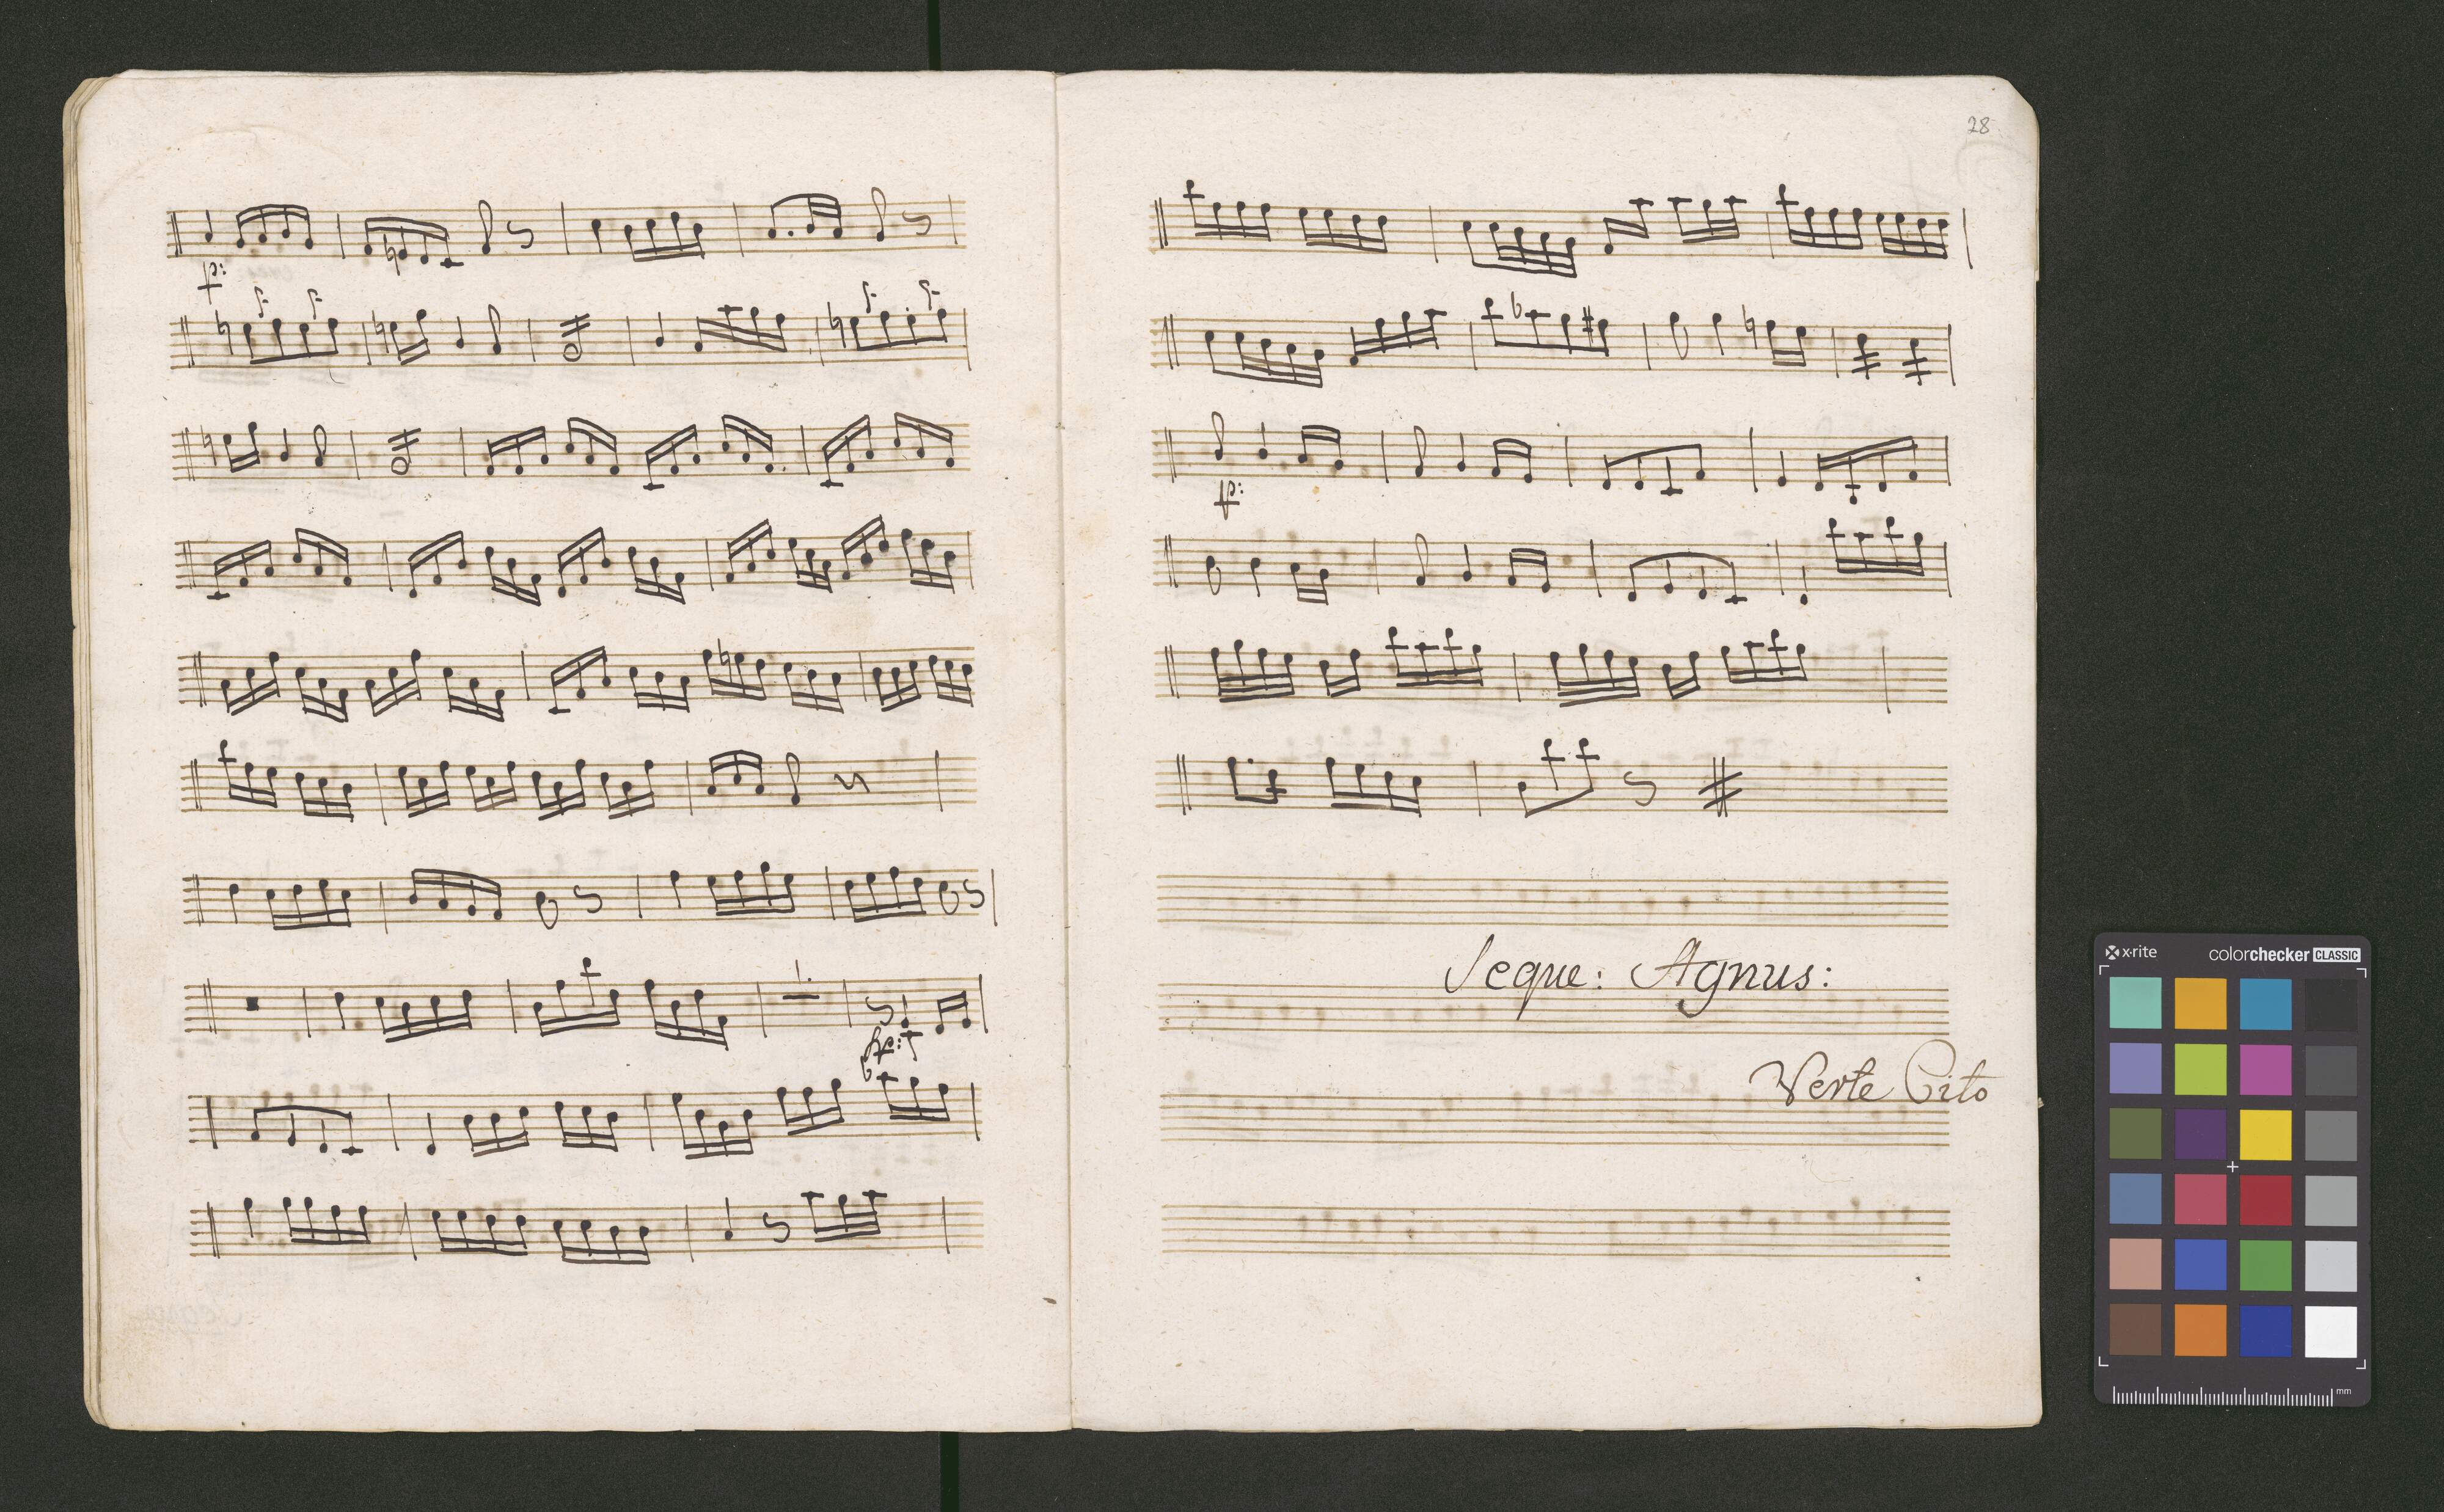 p:
f.
f.
f.
f.
fp:
28
p:
Seque: Agnus:
Verte Cito
x-rite
colorchecker CLASSIC
mm